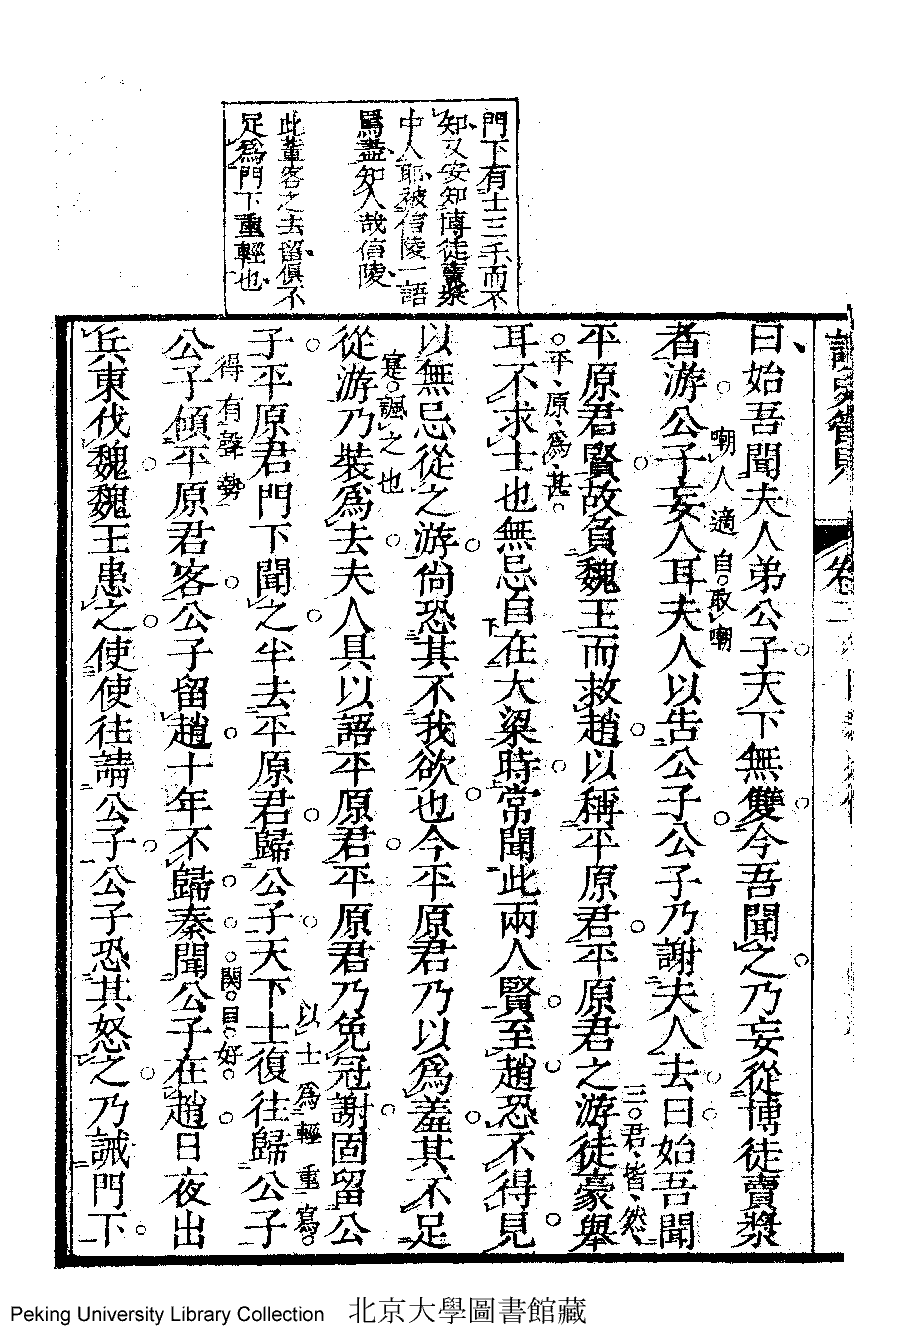 門下有士三千而不
知又安知博徒賣漿
中人耶被信陵一語
罵盡知人哉信陵
此輩客之去留俱不
足爲門下重輕也
曰始吾聞夫人弟公子天下無雙今吾聞之乃妄從博徒賣漿
者游公子妄人耳夫人以告公子公子乃謝夫人去曰始吾聞
嘲人適自取嘲
三君皆然
平原君賢故負魏王而救趙以稱平原君平原君之游徒豪舉
平原爲甚
耳不求士也無忌自在大梁時常聞此兩人賢至趙恐不得見
以無忌從之游尙恐其不我欲也今平原君乃以爲羞其不足
寔諷之也
從游乃裝爲去夫人具以語平原君平原君乃免冠謝固留公
以士爲輕重寫
子平原君門下聞之半去平原君歸公子天下士復往歸公子
得有聲勢
關目好
公子傾平原君客公子留趙十年不歸秦聞公子在趙日夜出
兵東伐魏魏王患之使使往請公子公子恐其怒之乃誡門下
卷二
Peking University Library Collection 北京大學圖書館藏